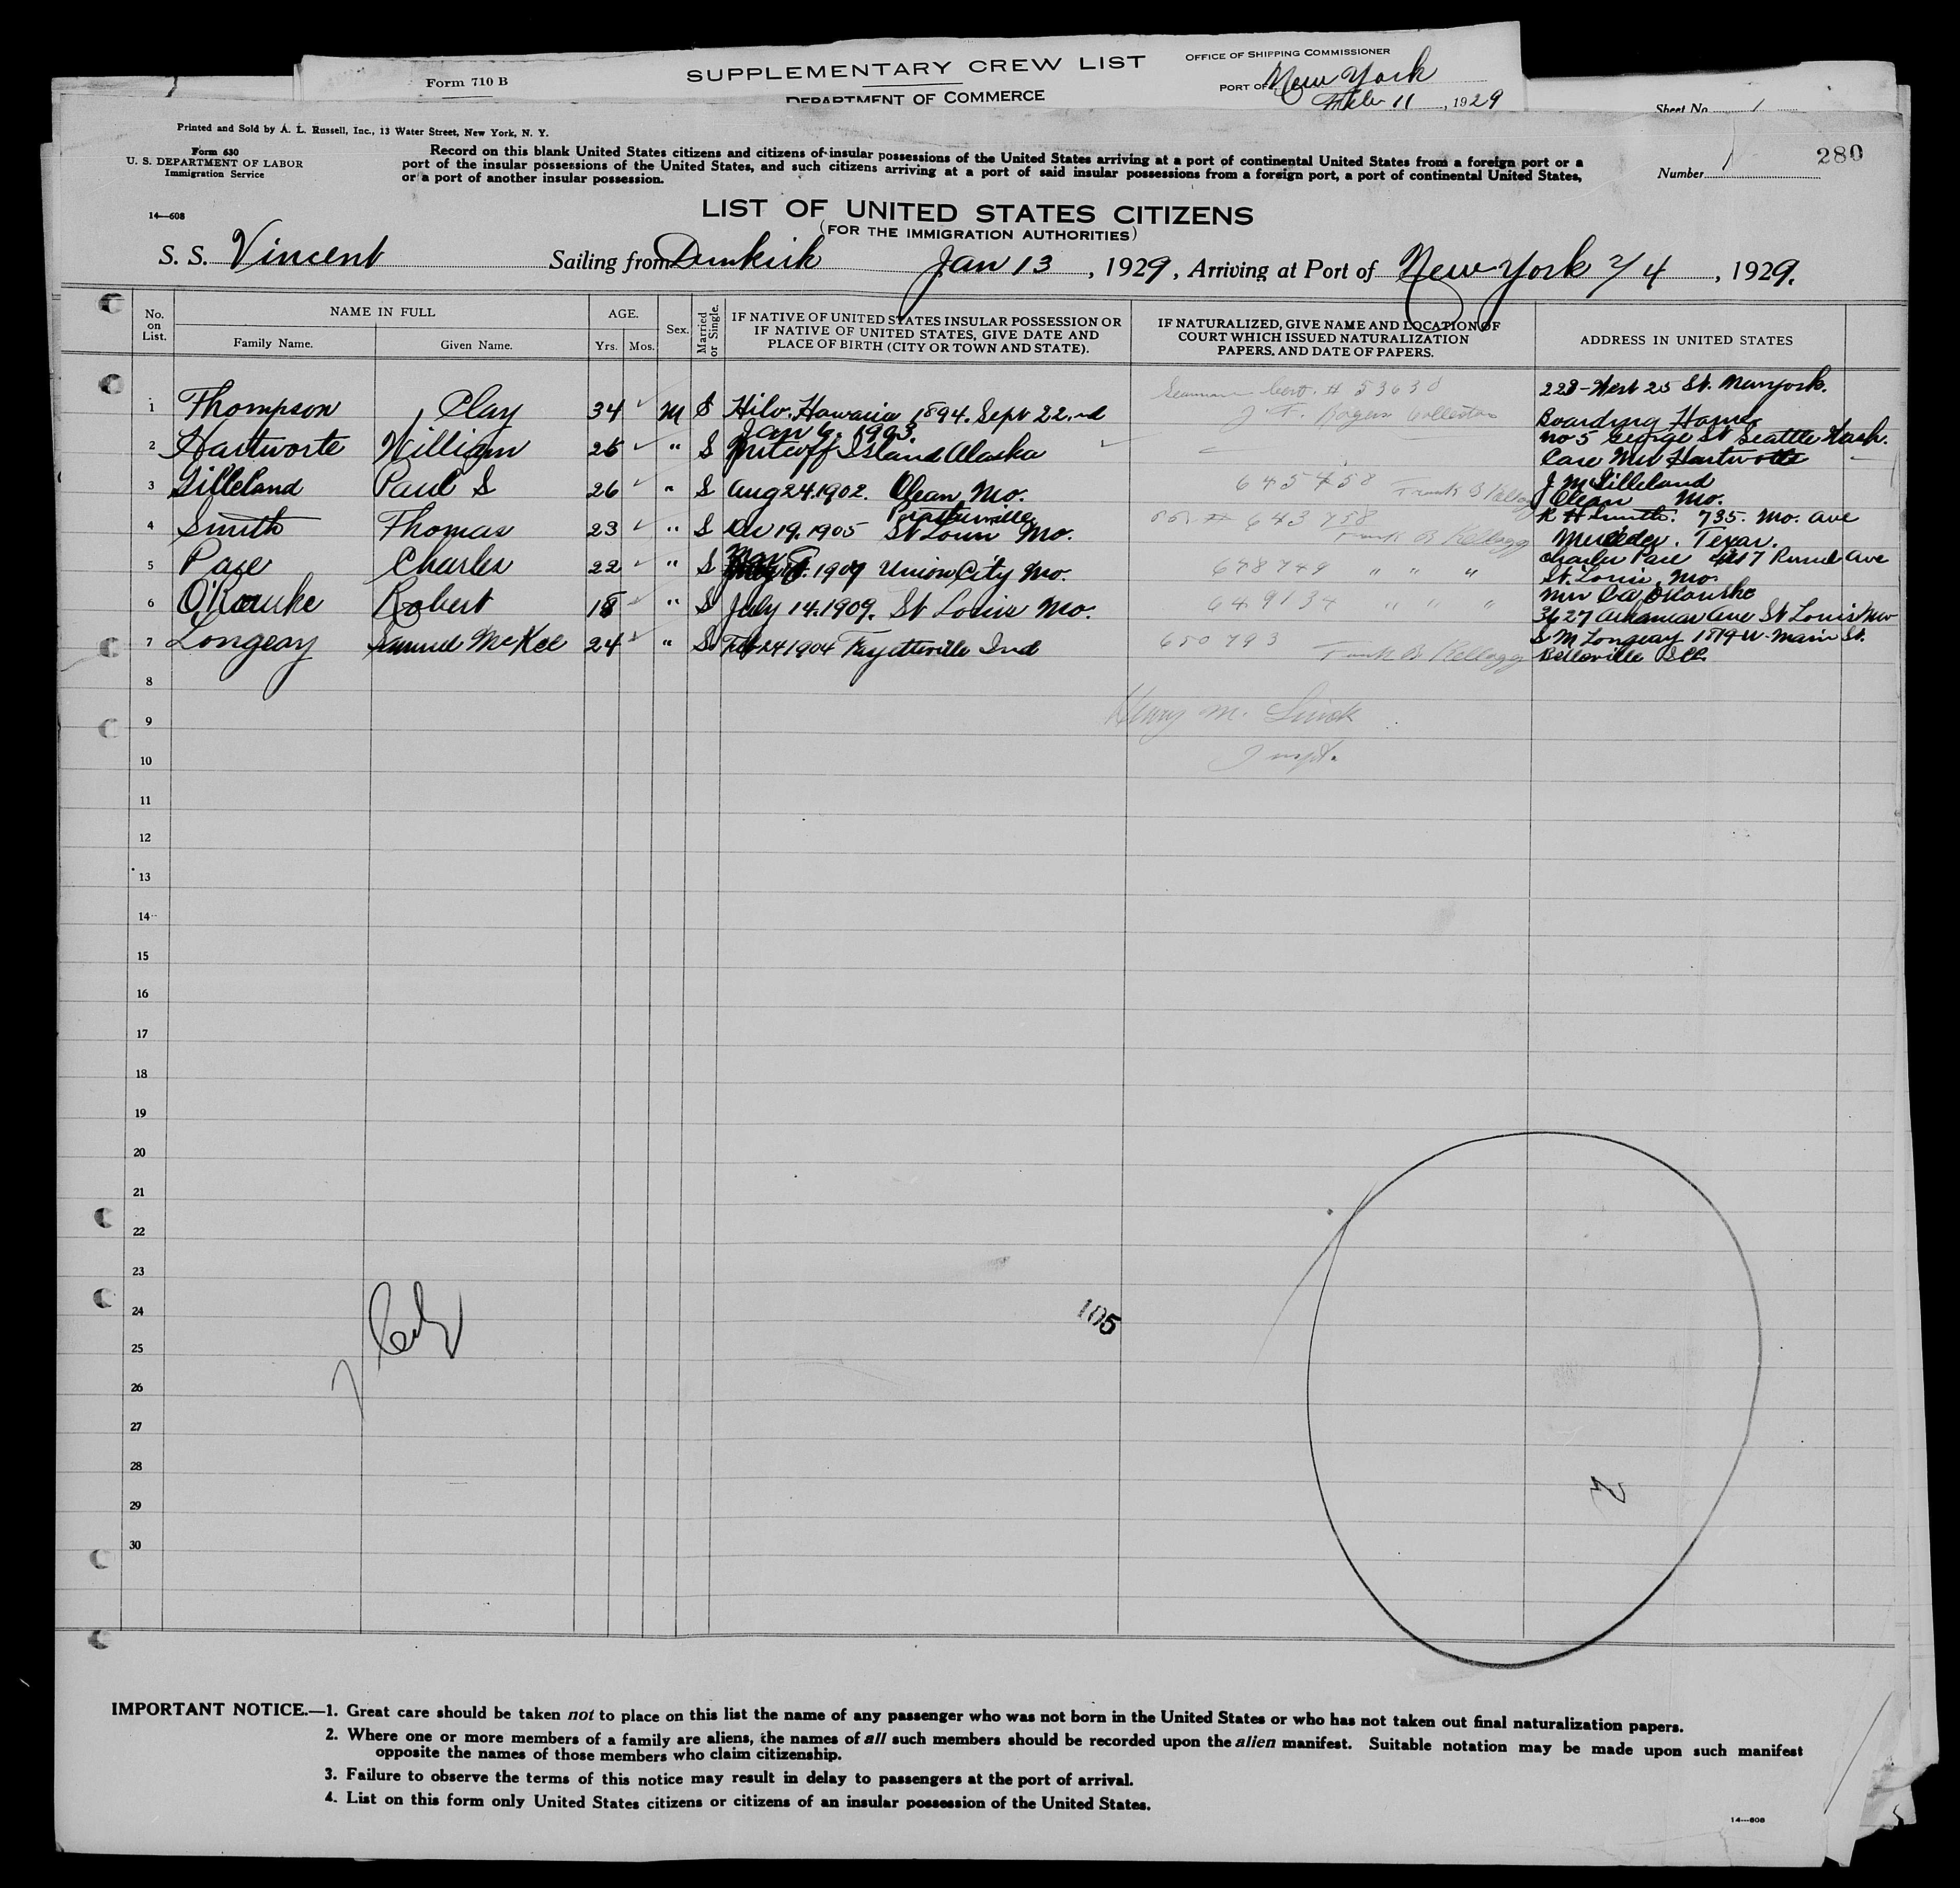 Form 710 B
SUPPLEMENTARY CREW LIST
DEPARTMENT OF COMMERCE
OFFICE OF SHIPPING COMMISSIONER
PORT OF New York
Feb 11, 1929
Sheet No. 1
Printed and Sold by A. L. Russell, Inc., 13 Water Street, New York, N. Y.
Form 630
U. S. DEPARTMENT OF LABOR
Immigration Service
14—608
Record on this blank United States citizens and citizens of insular possessions of the United States arriving at a port of continental United States from a foreign port or a
port of the insular possessions of the United States, and such citizens arriving at a port of said insular possessions from a foreign port, a port of continental United States,
or a port of another insular possession.
Number 1
280
LIST OF UNITED STATES CITIZENS
(FOR THE IMMIGRATION AUTHORITIES)
S. S. Vincent Sailing from Dunkirk Jan 13, 1929, Arriving at Port of New York 2/4, 1929.
No. on List.
NAME IN FULL
Family Name. Given Name.
AGE.
Yrs. Mos.
Sex.
Married or Single.
IF NATIVE OF UNITED STATES INSULAR POSSESSION OR
IF NATIVE OF UNITED STATES, GIVE DATE AND
PLACE OF BIRTH (CITY OR TOWN AND STATE).
IF NATURALIZED, GIVE NAME AND LOCATION OF
COURT WHICH ISSUED NATURALIZATION
PAPERS, AND DATE OF PAPERS.
ADDRESS IN UNITED STATES
Seaman Cert. # 53630 228-West 25 St. New York.
1 Thompson Clay 34 M S Hilo. Hawaii 1894. Sept 22.nd J. F. Rogers Collector Boarding Home
Jan 6. 1903. No 5 George St Seattle Wash.
2 Hartworte William 26 " S Island Alaska Care Mrs Hartworte
3 Gilleland Paul S 26 " S Aug 24. 1902. Olean Mo. 645458 Frank B Kellogg J. M Gilleland
Olean Mo.
4 Smith Thomas 23 " S Dec 19. 1905 St Louis Mo. 643758 Frank B Kellogg R H Smith. 735. Mo. Ave
Mercedes. Texas.
5 Pace Charles 22 " S 1907 Union City Mo. 678749 " " " Charles Pace Ave
St. Louis. Mo.
6 O'Rourke Robert 18 " S July 14. 1909. St Louis Mo. 649134 " " " Mrs O'Rourke
3627 Arkansas Ave St Louis Mo
7 Longeay Samuel McKee 24 " S Feb 24 1904 Fayetteville Ind 650793 Frank B. Kellogg S M Longeay 1819 W. Main St.
Belleville Ill.
8
9 Henry M.
10 Inspt.
11
12
13
14
15
16
17
18
19
20
21
22
23
24
105
25
26
27
28
29
30
IMPORTANT NOTICE.—1. Great care should be taken not to place on this list the name of any passenger who was not born in the United States or who has not taken out final naturalization papers.
2. Where one or more members of a family are aliens, the names of all such members should be recorded upon the alien manifest. Suitable notation may be made upon such manifest
opposite the names of those members who claim citizenship.
3. Failure to observe the terms of this notice may result in delay to passengers at the port of arrival.
4. List on this form only United States citizens or citizens of an insular possession of the United States.
14—608